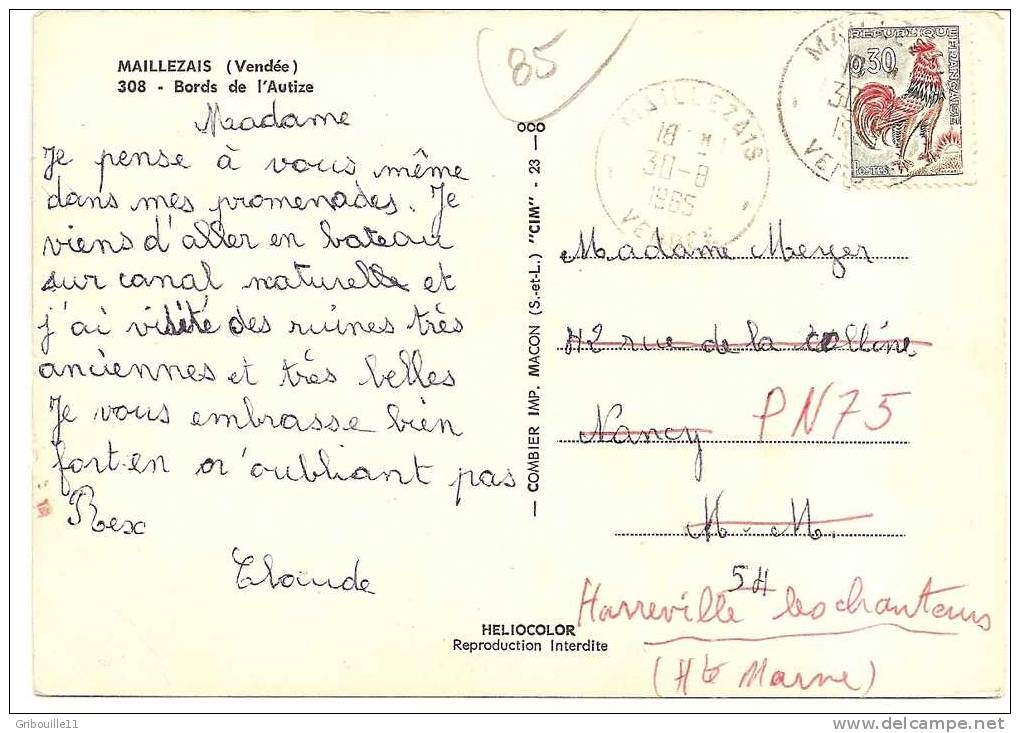 MAILLEZAIS (Vendée)
308 - Bords de l'Autize
Madame
Je pense à vous même
dans mes promenades. Je
viens d'aller en bateau
sur canal naturelle et
j'ai visité des ruines très
anciennes et très belles
Je vous embrasse bien
fort en n'oubliant pas
Rex
Claude
85
— COMBIER IMP. MACON (S.-et-L.) "CIM" - 23 — OOO
MAILLEZAIS
18
30-8
1965
VENDÉE
REPUBLIQUE
FRANÇAISE
0,30
Postes
Madame Meyer
42 rue de la Colline
Nancy PN75
M. M.
54
Harreville les chanteurs
(Hte Marne)
HELIOCOLOR
Reproduction Interdite
Gribouille11
www.delcampe.net